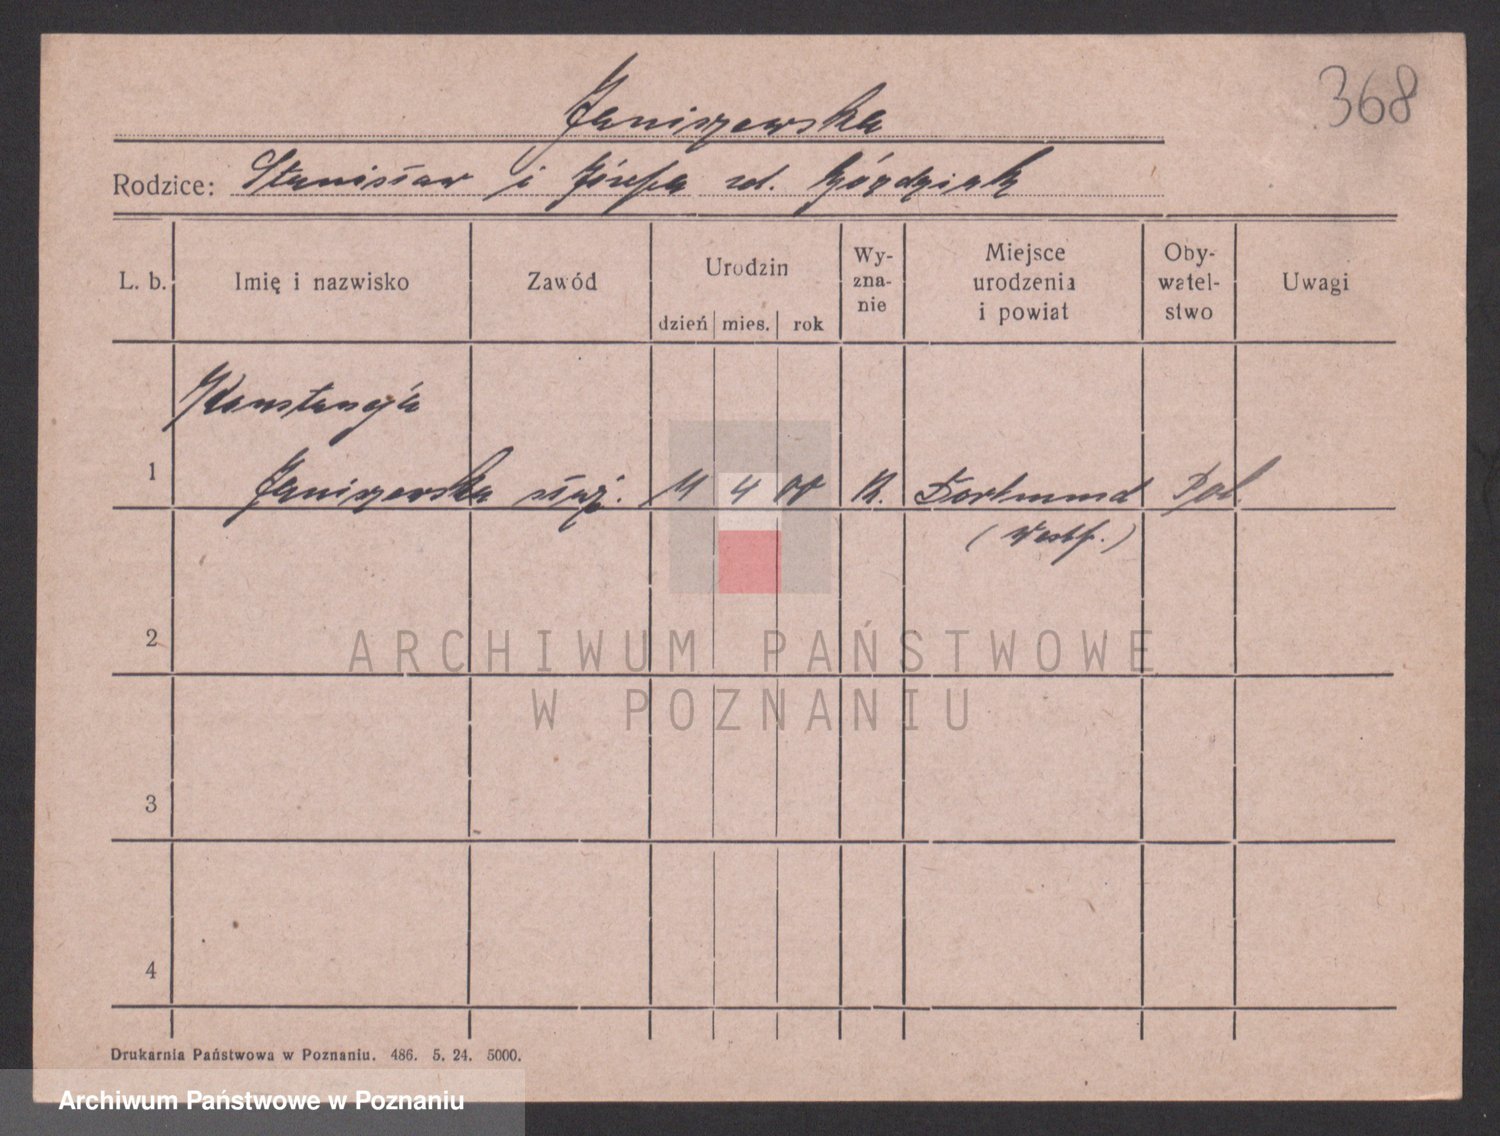 368
Janiszewska
Rodzice: Stanisław i Józefa zd. Góździak
L. b. Imię i nazwisko Zawód Urodzin dzień mies. rok Wy-zna-nie Miejsce urodzenia i powiat Oby-watel-stwo Uwagi
Konstancja
1 Janiszewska służ. 11 4 00 K. Dortmund Pol
(Westf.)
2
ARCHIWUM PAŃSTWOWE
W POZNANIU
3
4
Drukarnia Państwowa w Poznaniu. 486. 5. 24. 5000.
Archiwum Państwowe w Poznaniu